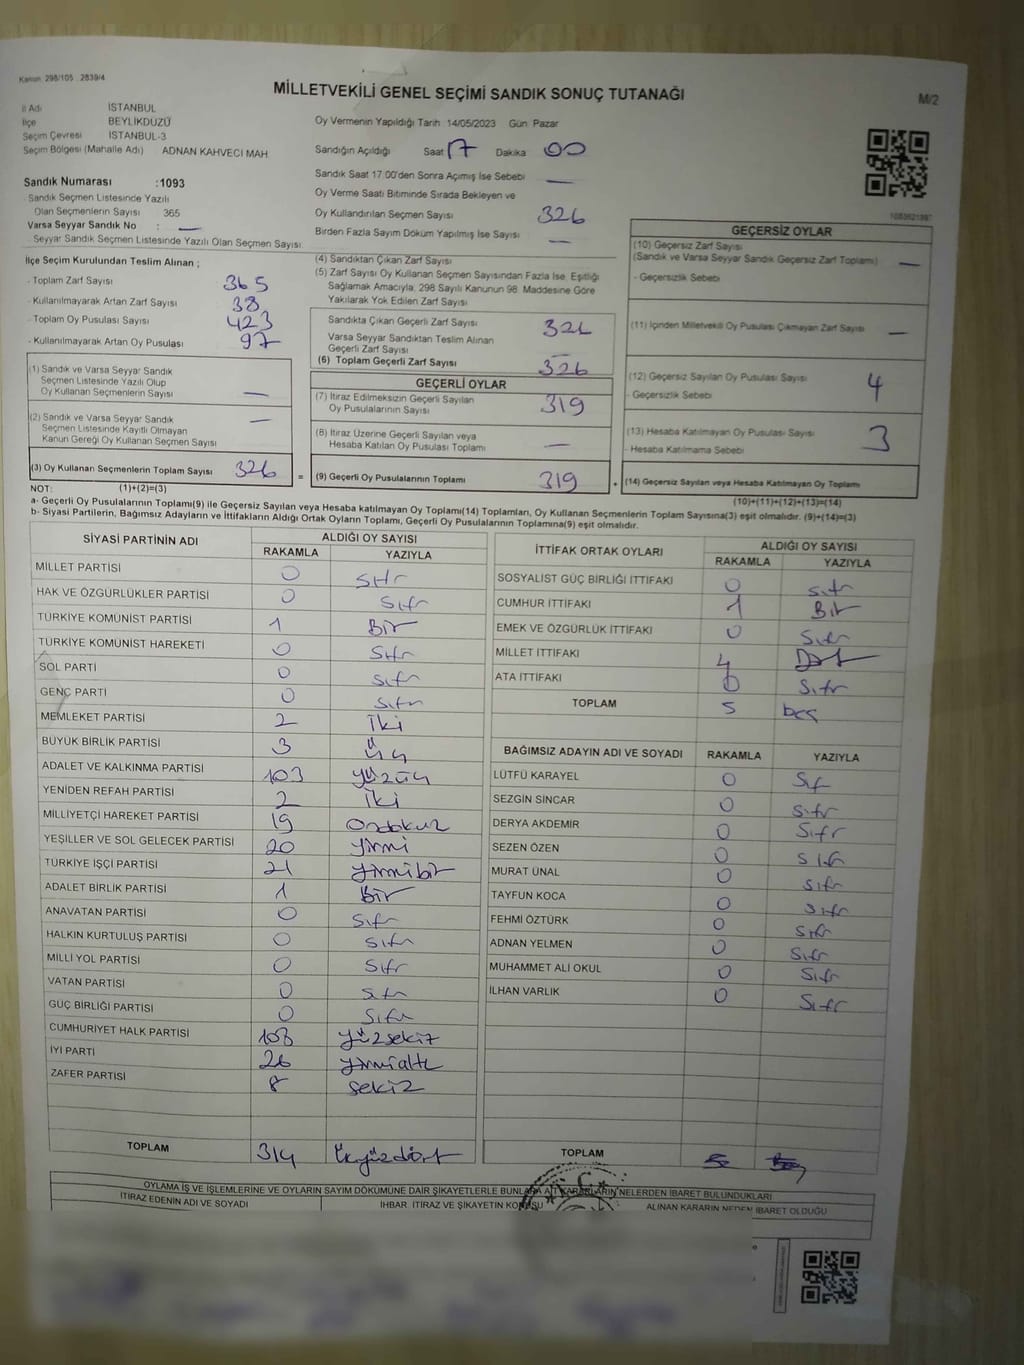 Kanun 298/105 2839/4
MİLLETVEKİLİ GENEL SEÇİMİ SANDIK SONUÇ TUTANAĞI
M/2
İl Adı İSTANBUL
İlçe BEYLİKDÜZÜ
Seçim Çevresi İSTANBUL-3
Seçim Bölgesi (Mahalle Adı) ADNAN KAHVECİ MAH
Sandık Numarası :1093
Sandık Seçmen Listesinde Yazılı
Olan Seçmenlerin Sayısı 365
Varsa Seyyar Sandık No : —
Seyyar Sandık Seçmen Listesinde Yazılı Olan Seçmen Sayısı
Oy Vermenin Yapıldığı Tarih 14/05/2023 Gün Pazar
Sandığın Açıldığı Saat 17 Dakika 00
Sandık Saat 17.00'den Sonra Açılmış İse Sebebi —
Oy Verme Saati Bitiminde Sırada Bekleyen ve
Oy Kullandırılan Seçmen Sayısı 326
Birden Fazla Sayım Döküm Yapılmış İse Sayısı —
İlçe Seçim Kurulundan Teslim Alınan ;
- Toplam Zarf Sayısı 365
- Kullanılmayarak Artan Zarf Sayısı 38
- Toplam Oy Pusulası Sayısı 423
- Kullanılmayarak Artan Oy Pusulası 97
(1) Sandık ve Varsa Seyyar Sandık
Seçmen Listesinde Yazılı Olup
Oy Kullanan Seçmenlerin Sayısı —
(2) Sandık ve Varsa Seyyar Sandık
Seçmen Listesinde Kayıtlı Olmayan
Kanun Gereği Oy Kullanan Seçmen Sayısı —
(3) Oy Kullanan Seçmenlerin Toplam Sayısı 326 =
(4) Sandıktan Çıkan Zarf Sayısı
(5) Zarf Sayısı Oy Kullanan Seçmen Sayısından Fazla İse, Eşitliği
Sağlamak Amacıyla, 298 Sayılı Kanunun 98. Maddesine Göre
Yakılarak Yok Edilen Zarf Sayısı
Sandıkta Çıkan Geçerli Zarf Sayısı 326
Varsa Seyyar Sandıktan Teslim Alınan
Geçerli Zarf Sayısı —
(6) Toplam Geçerli Zarf Sayısı 326
GEÇERLİ OYLAR
(7) İtiraz Edilmeksizin Geçerli Sayılan
Oy Pusulalarının Sayısı 319
(8) İtiraz Üzerine Geçerli Sayılan veya
Hesaba Katılan Oy Pusulası Toplamı —
(9) Geçerli Oy Pusulalarının Toplamı 319 +
GEÇERSİZ OYLAR
(10) Geçersiz Zarf Sayısı
(Sandık ve Varsa Seyyar Sandık Geçersiz Zarf Toplamı) —
- Geçersizlik Sebebi
(11) İçinden Milletvekili Oy Pusulası Çıkmayan Zarf Sayısı —
(12) Geçersiz Sayılan Oy Pusulası Sayısı 4
- Geçersizlik Sebebi
(13) Hesaba Katılmayan Oy Pusulası Sayısı 3
- Hesaba Katılmama Sebebi
(14) Geçersiz Sayılan veya Hesaba Katılmayan Oy Toplamı
NOT: (1)+(2)=(3) (10)+(11)+(12)+(13)=(14)
a- Geçerli Oy Pusulalarının Toplamı(9) ile Geçersiz Sayılan veya Hesaba katılmayan Oy Toplamı(14) Toplamları, Oy Kullanan Seçmenlerin Toplam Sayısına(3) eşit olmalıdır. (9)+(14)=(3)
b- Siyasi Partilerin, Bağımsız Adayların ve İttifakların Aldığı Ortak Oyların Toplamı, Geçerli Oy Pusulalarının Toplamına(9) eşit olmalıdır.
SİYASİ PARTİNİN ADI ALDIĞI OY SAYISI
RAKAMLA YAZIYLA
MİLLET PARTİSİ 0 Sıfır
HAK VE ÖZGÜRLÜKLER PARTİSİ 0 Sıfır
TÜRKİYE KOMÜNİST PARTİSİ 1 Bir
TÜRKİYE KOMÜNİST HAREKETİ 0 Sıfır
SOL PARTİ 0 Sıfır
GENÇ PARTİ 0 Sıfır
MEMLEKET PARTİSİ 2 İki
BÜYÜK BİRLİK PARTİSİ 3 Üç
ADALET VE KALKINMA PARTİSİ 103 yüzüç
YENİDEN REFAH PARTİSİ 2 İki
MİLLİYETÇİ HAREKET PARTİSİ 19 Ondokuz
YEŞİLLER VE SOL GELECEK PARTİSİ 20 yirmi
TÜRKİYE İŞÇİ PARTİSİ 21 yirmibir
ADALET BİRLİK PARTİSİ 1 Bir
ANAVATAN PARTİSİ 0 Sıfır
HALKIN KURTULUŞ PARTİSİ 0 Sıfır
MİLLİ YOL PARTİSİ 0 Sıfır
VATAN PARTİSİ 0 Sıfır
GÜÇ BİRLİĞİ PARTİSİ 0 Sıfır
CUMHURİYET HALK PARTİSİ 108 yüzsekiz
İYİ PARTİ 26 yirmialtı
ZAFER PARTİSİ 8 sekiz
TOPLAM 314 Üçyüzdört
İTTİFAK ORTAK OYLARI ALDIĞI OY SAYISI
RAKAMLA YAZIYLA
SOSYALİST GÜÇ BİRLİĞİ İTTİFAKI 0 Sıfır
CUMHUR İTTİFAKI 1 Bir
EMEK VE ÖZGÜRLÜK İTTİFAKI 0 Sıfır
MİLLET İTTİFAKI 4 Dört
ATA İTTİFAKI 0 Sıfır
TOPLAM 5 beş
BAĞIMSIZ ADAYIN ADI VE SOYADI RAKAMLA YAZIYLA
LÜTFÜ KARAYEL 0 Sıfır
SEZGİN SİNCAR 0 Sıfır
DERYA AKDEMİR 0 Sıfır
SEZEN ÖZEN 0 Sıfır
MURAT ÜNAL 0 Sıfır
TAYFUN KOCA 0 Sıfır
FEHMİ ÖZTÜRK 0 Sıfır
ADNAN YELMEN 0 Sıfır
MUHAMMET ALİ OKUL 0 Sıfır
İLHAN VARLIK 0 Sıfır
TOPLAM
OYLAMA İŞ VE İŞLEMLERİNE VE OYLARIN SAYIM DÖKÜMÜNE DAİR ŞİKAYETLERLE BUNLARA AİT KARARLARIN NELERDEN İBARET BULUNDUKLARI
İTİRAZ EDENİN ADI VE SOYADI İHBAR İTİRAZ VE ŞİKAYETİN KONUSU ALINAN KARARIN NEDEN İBARET OLDUĞU
T.C.